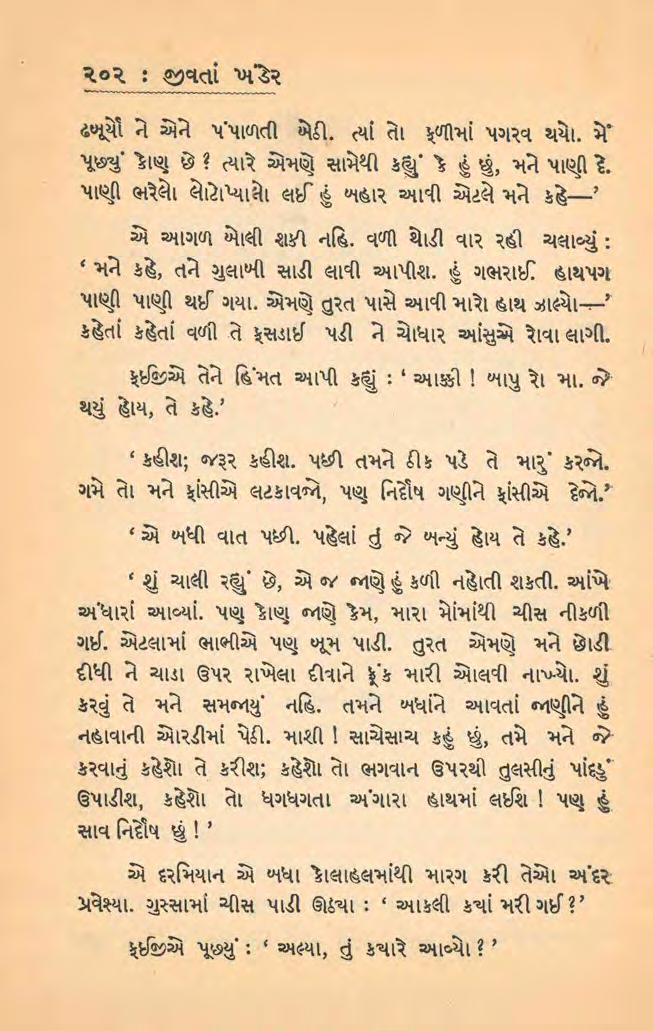 ૨૦૨ : જીવતાં ખંડેર
ઢબૂર્યો ને એને પંપાળતી બેઠી. ત્યાં તો ફળીમાં પગરવ થયો. મેં
પૂછ્યું કોણ છે? ત્યારે એમણે સામેથી કહ્યું કે હું છું, મને પાણી દે.
પાણી ભરેલો લોટોપ્યાલો લઈ હું બહાર આવી એટલે મને કહે—’
એ આગળ બોલી શકી નહિ. વળી થોડી વાર રહી ચલાવ્યું :
‘મને કહે, તને ગુલાબી સાડી લાવી આપીશ. હું ગભરાઈ. હાથપગ
પાણી પાણી થઈ ગયા. એમણે તુરત પાસે આવી મારો હાથ ઝાલ્યો—’
કહેતાં કહેતાં વળી તે ફસડાઈ પડી ને ચોધાર આંસુએ રોવા લાગી.
ફઈજીએ તેને હિંમત આપી કહ્યું : ‘આક્કી ! બાપુ રો મા. જે
થયું હોય, તે કહે.’
‘કહીશ; જરૂર કહીશ. પછી તમને ઠીક પડે તે મારું કરજો.
ગમે તો મને ફાંસીએ લટકાવજો, પણ નિર્દોષ ગણીને ફાંસીએ દેજો.’
‘એ બધી વાત પછી. પહેલાં તું જે બન્યું હોય તે કહે.’
‘શું ચાલી રહ્યું છે, એ જ જાણે હું કળી નહોતી શકતી. આંખે
અંધારાં આવ્યાં. પણ કોણ જાણે કેમ, મારા મોંમાંથી ચીસ નીકળી
ગઈ. એટલામાં ભાભીએ પણ બૂમ પાડી. તુરત એમણે મને છોડી
દીધી ને ચાડા ઉપર રાખેલા દીવાને ફૂંક મારી ઓલવી નાખ્યો. શું
કરવું તે મને સમજાયું નહિ. તમને બધાંને આવતાં જાણીને હું
નહાવાની ઓરડીમાં પેઠી. માશી ! સાચેસાચ કહું છું, તમે મને જે
કરવાનું કહેશો તે કરીશ; કહેશો તો ભગવાન ઉપરથી તુલસીનું પાંદડું
ઉપાડીશ, કહેશો તો ધગધગતા અંગારા હાથમાં લઈશ ! પણ હું
સાવ નિર્દોષ છું ! ’
એ દરમિયાન એ બધા કોલાહલમાંથી મારગ કરી તેઓ અંદર
પ્રવેશ્યા. ગુસ્સામાં ચીસ પાડી ઊઠ્યા : ‘આકલી ક્યાં મરી ગઈ ?’
ફઈજીએ પૂછ્યું : ‘અલ્યા, તું ક્યારે આવ્યો ?’